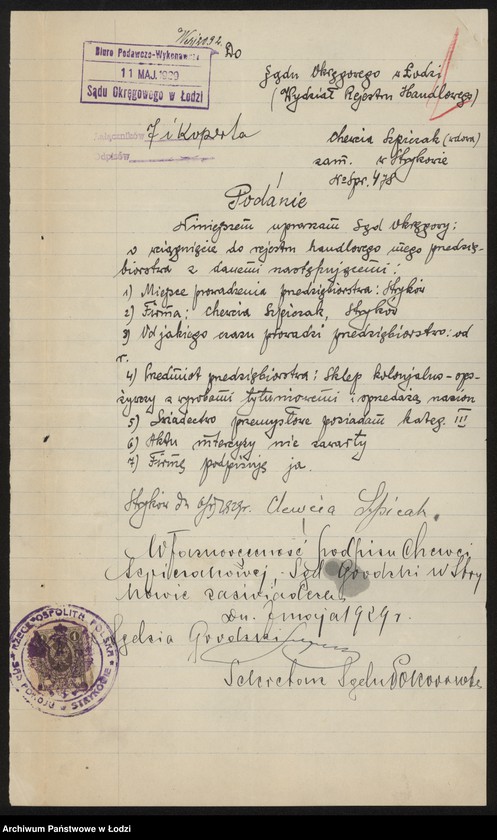 Do
Biuro Podawczo-Wykonawcze
11 MAJ. 1929
Sądu Okręgowego w Łodzi
Sądu Okręgowego w Łodzi
(Wydział Rejestru Handlowego)
Załączników 7 i Koperta
Odpisów
Chewcia Szpiczak (wdowa)
zam. w Strykowie
№ Spr. 478
Podanie
Niniejszem upraszam Sąd Okręgowy:
o wciągnięcie do rejestru handlowego mego przedsię-
biorstwa z danemi następującemi:
1) Miejsce prowadzenia przedsiębiorstwa: Stryków
2) Firma: Chewcia Szpiczak, Stryków
3) Od jakiego czasu prowadzi przedsiębiorstwo: od
r.
4) Przedmiot przedsiębiorstwa: Sklep kolonjalno-spo-
żywczy z wyrobami tytuniowemi i sprzedażą nasion
5) Świadectwo przemysłowe posiadam kateg. III
6) Aktu intercyzy nie zawarty
7) Firmę podpisuję ja.
Stryków dn. 1929r. Chewcia Szpicak
Własnoręczność podpisu Chewci
Szpiczakowej Sąd Grodzki w Stry
kowie zaświadcza
Dn. 7 maja 1929 r.
Sędzia Grodzki
Sekretarz Sądu
RZECZPOSPOLITA POLSKA
SĄD POKOJU w STRYKOWIE
Archiwum Państwowe w Łodzi